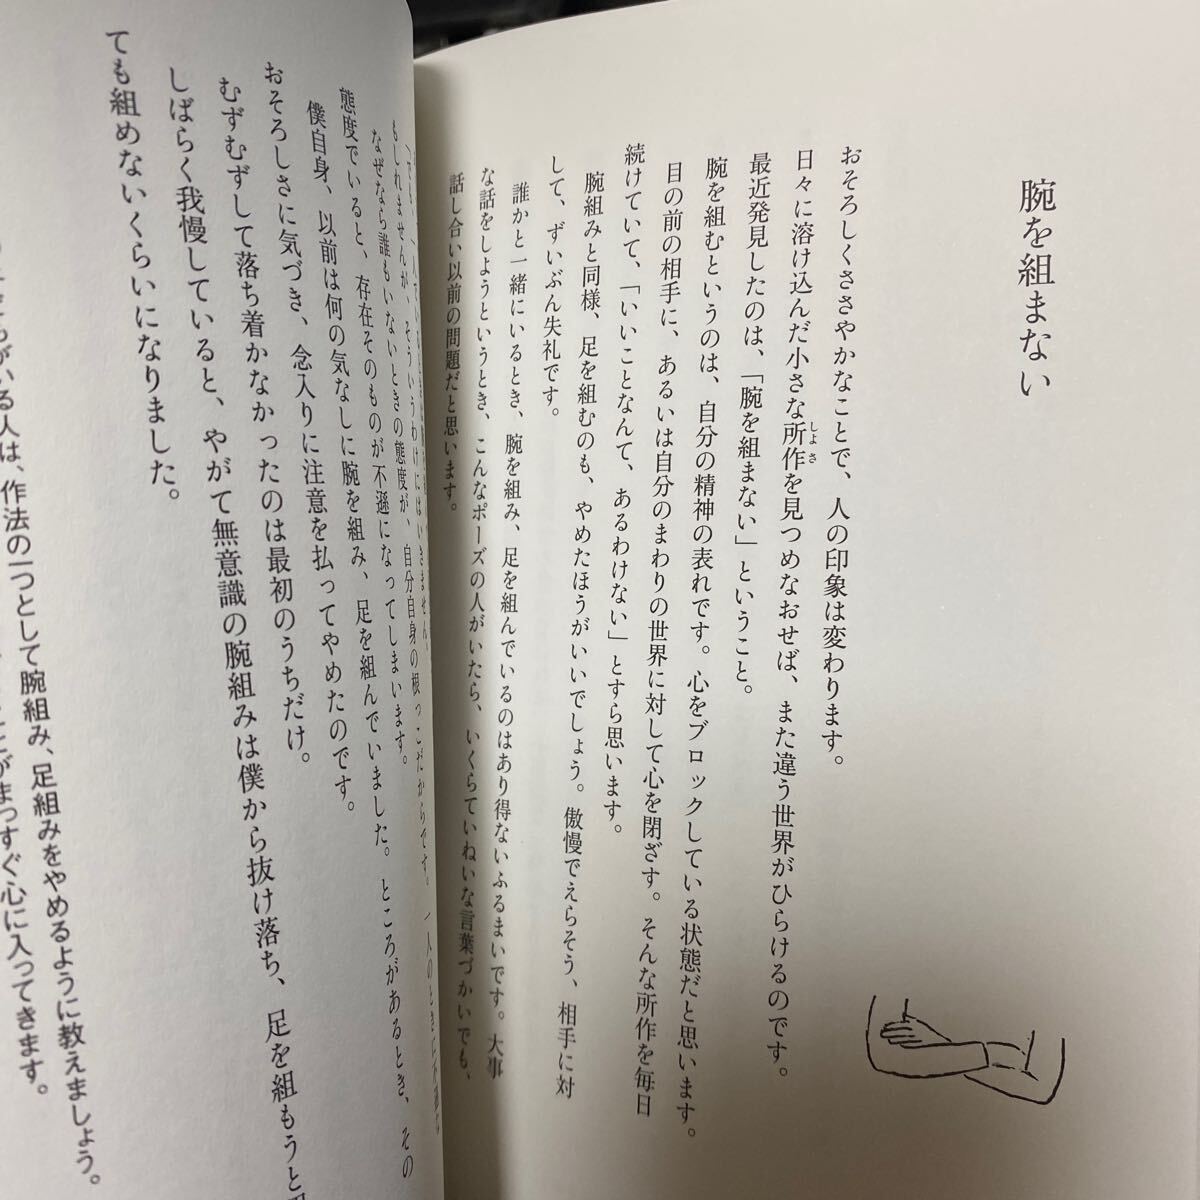 腕を組まない
おそろしくささやかなことで、人の印象は変わります。
日々に溶け込んだ小さな所作を見つめなおせば、また違う世界がひらけるのです。
しょさ
最近発見したのは、「腕を組まない」ということ。
腕を組むというのは、自分の精神の表れです。心をブロックしている状態だと思います。
目の前の相手に、あるいは自分のまわりの世界に対して心を閉ざす。そんな所作を毎日
続けていて、「いいことなんて、あるわけない」とすら思います。
腕組みと同様、足を組むのも、やめたほうがいいでしょう。傲慢でえらそう、相手に対
して、ずいぶん失礼です。
誰かと一緒にいるとき、腕を組み、足を組んでいるのはあり得ないふるまいです。大事
な話をしようというとき、こんなポーズの人がいたら、いくらていねいな言葉づかいでも、
話し合い以前の問題だと思います。
もしれませんが、そういうわけにはいきません。
なぜなら誰もいないときの態度が、自分自身の根っこだからです。一人のときに不遜な
態度でいると、存在そのものが不遜になってしまいます。
僕自身、以前は何の気なしに腕を組み、足を組んでいました。ところがあるとき、その
おそろしさに気づき、念入りに注意を払ってやめたのです。
むずむずして落ち着かなかったのは最初のうちだけ。
しばらく我慢していると、やがて無意識の腕組みは僕から抜け落ち、足を組もうと
ても組めないくらいになりました。
がいる人は、作法の一つとして腕組み、足組みをやめるように教えましょう。
がまっすぐ心に入ってきます。